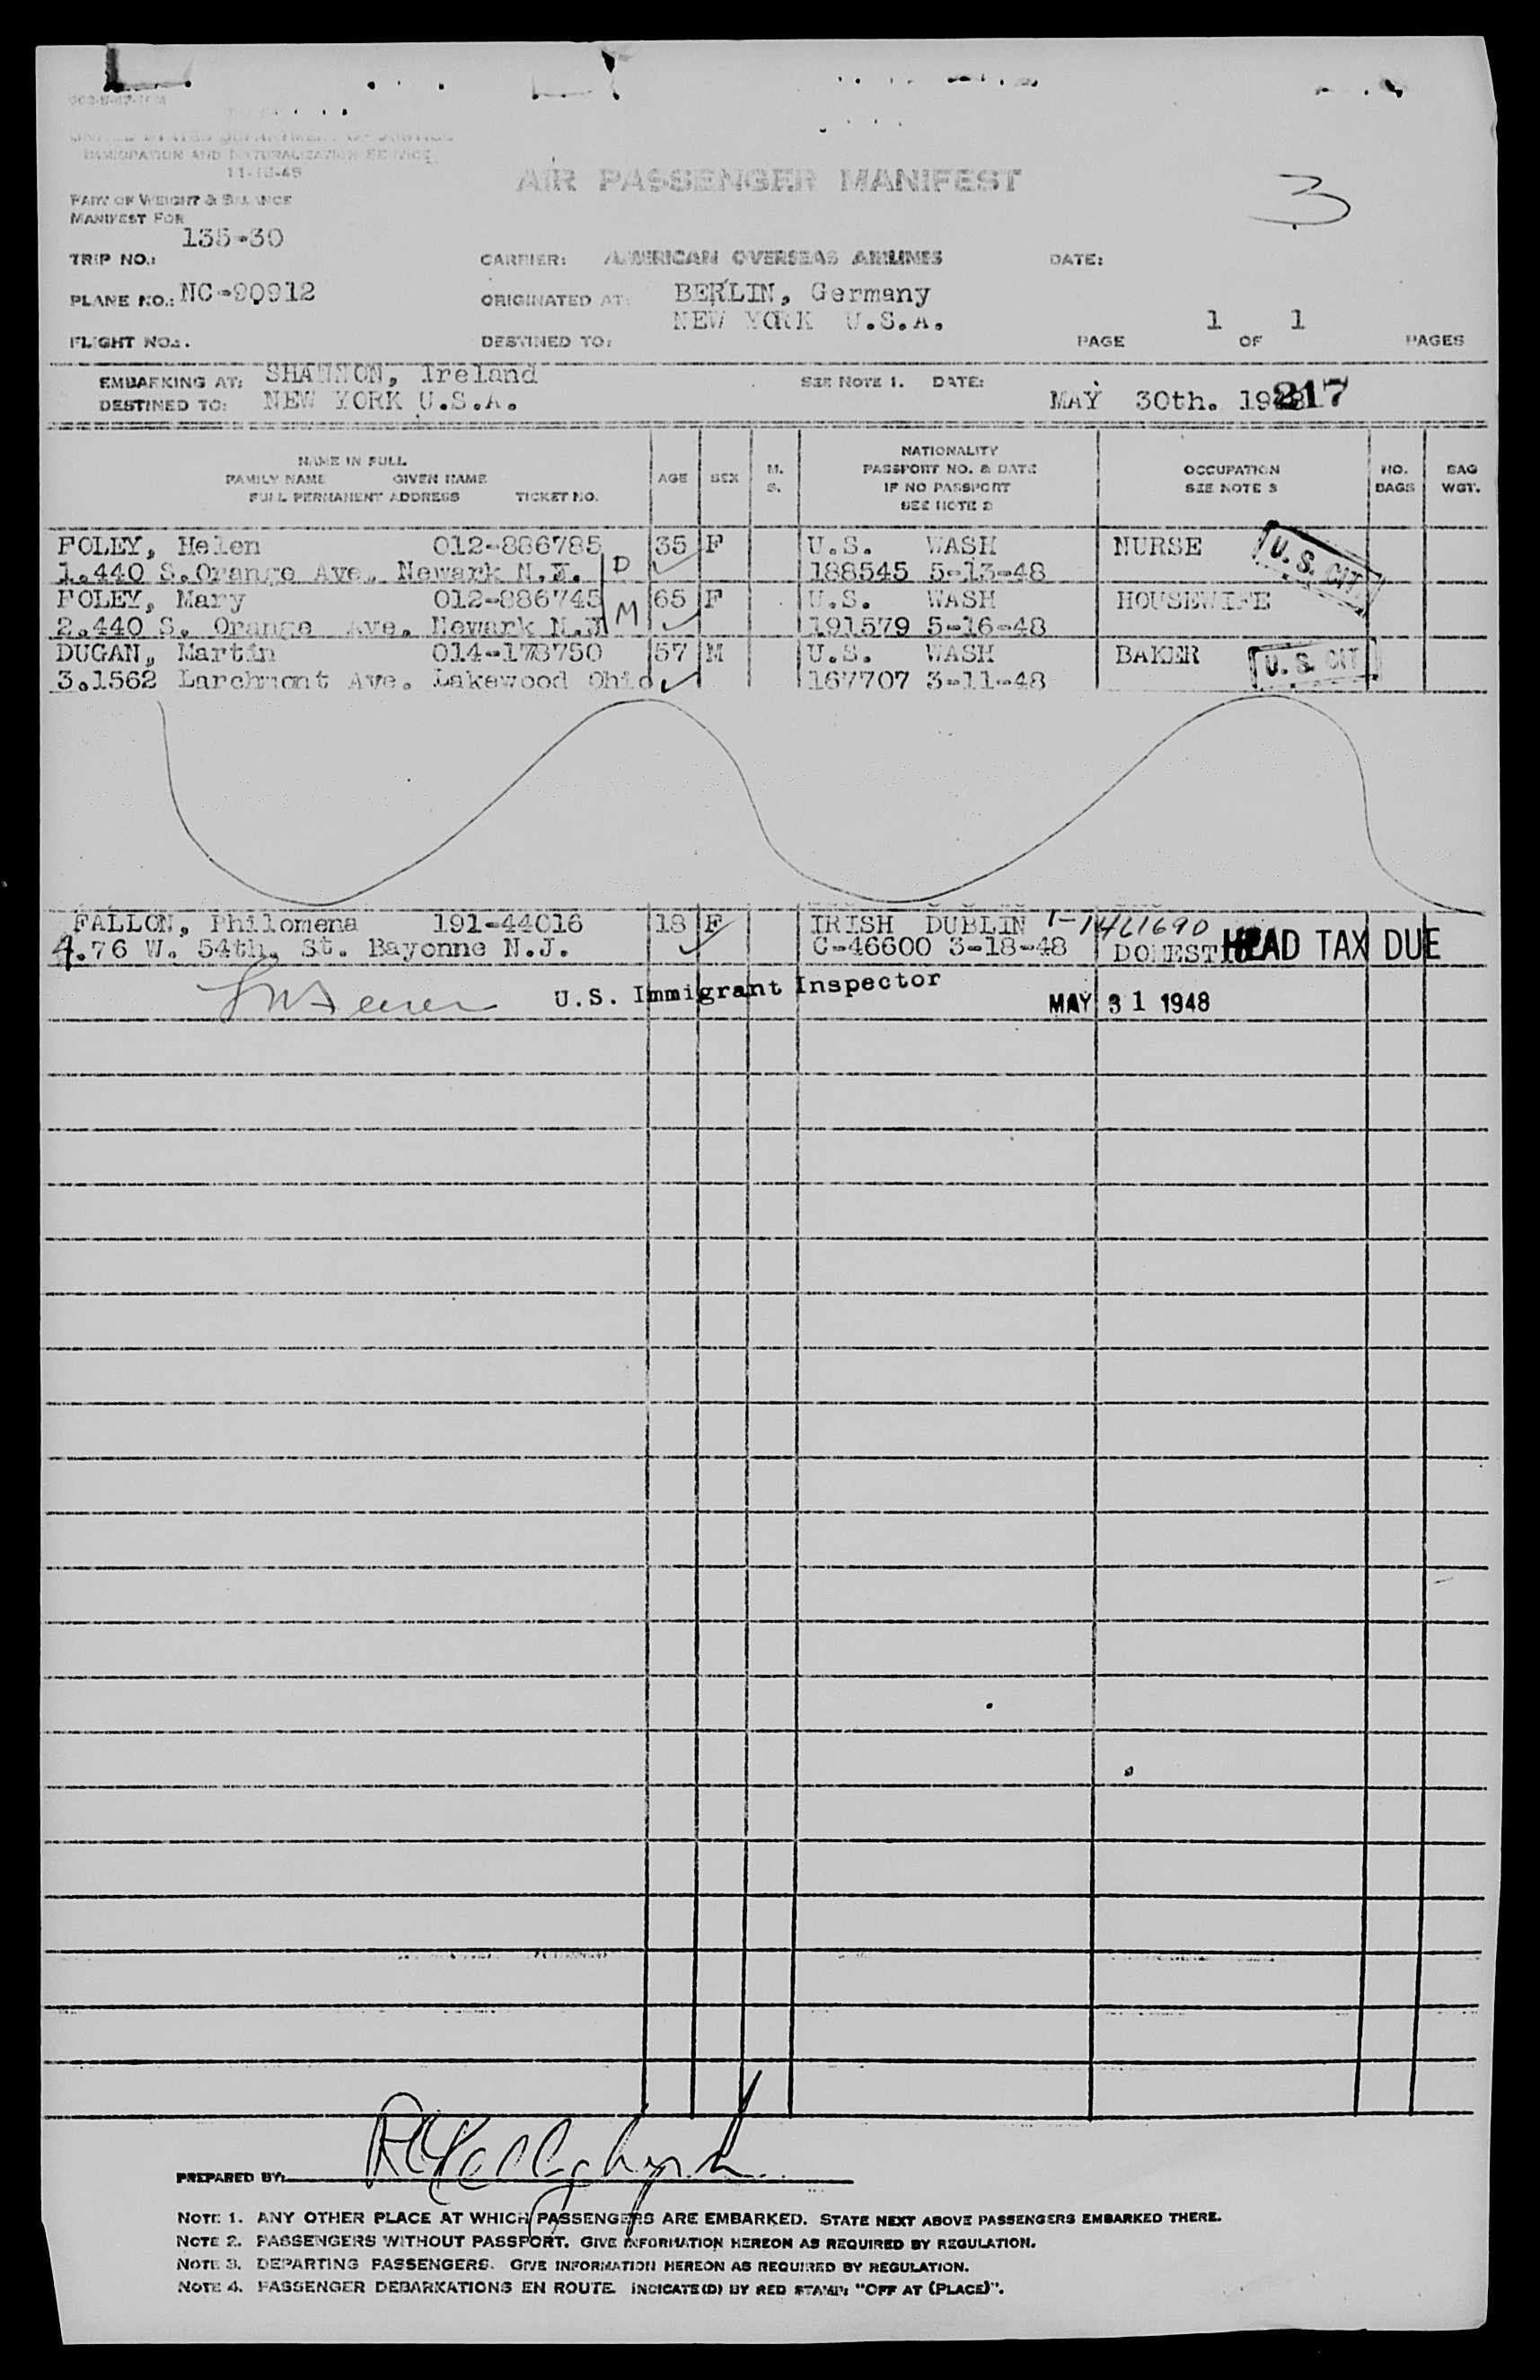 UNITED STATES DEPARTMENT OF JUSTICE
IMMIGRATION AND NATURALIZATION SERVICE
11-18-45
AIR PASSENGER MANIFEST
3
PART OF WEIGHT & BALANCE
MANIFEST FOR
135-30
TRIP NO.: CARRIER: AMERICAN OVERSEAS AIRLINES DATE:
PLANE NO.: NC-90912 ORIGINATED AT: BERLIN, Germany
NEW YORK U.S.A. 1 1
FLIGHT NO.: DESTINED TO: PAGE OF PAGES
EMBARKING AT: SHANNON, Ireland SEE NOTE 1. DATE:
DESTINED TO: NEW YORK U.S.A. MAY 30th. 217
NAME IN FULL
FAMILY NAME GIVEN NAME
FULL PERMANENT ADDRESS TICKET NO.
AGE SEX M. S.
NATIONALITY
PASSPORT NO. & DATE
IF NO PASSPORT
SEE NOTE 2
OCCUPATION
SEE NOTE 3
NO. BAGS
BAG WGT.
FOLEY, Helen 012-886785 35 F U.S. WASH NURSE U.S. CIT
1.440 S.Orange Ave. Newark N.J. D 188545 5-13-48
FOLEY, Mary 012-886745 65 F U.S. WASH HOUSEWIFE
2.440 S. Orange Ave. Newark N.J M 191579 5-16-48
DUGAN, Martin 014-178750 57 M U.S. WASH BAKER U.S. CIT
3.1562 Larchmont Ave. Lakewood Ohio 167707 3-11-48
FALLON, Philomena 191-44016 18 F IRISH DUBLIN
4.76 W. 54th. St. Bayonne N.J. C-46600 3-18-48 DOMESTIC HEAD TAX DUE
U.S. Immigrant Inspector MAY 31 1948
PREPARED BY:
NOTE 1. ANY OTHER PLACE AT WHICH PASSENGERS ARE EMBARKED. STATE NEXT ABOVE PASSENGERS EMBARKED THERE.
NOTE 2. PASSENGERS WITHOUT PASSPORT. GIVE INFORMATION HEREON AS REQUIRED BY REGULATION.
NOTE 3. DEPARTING PASSENGERS. GIVE INFORMATION HEREON AS REQUIRED BY REGULATION.
NOTE 4. PASSENGER DEBARKATIONS EN ROUTE. INDICATE(D) BY RED STAMP: "OFF AT (PLACE)".